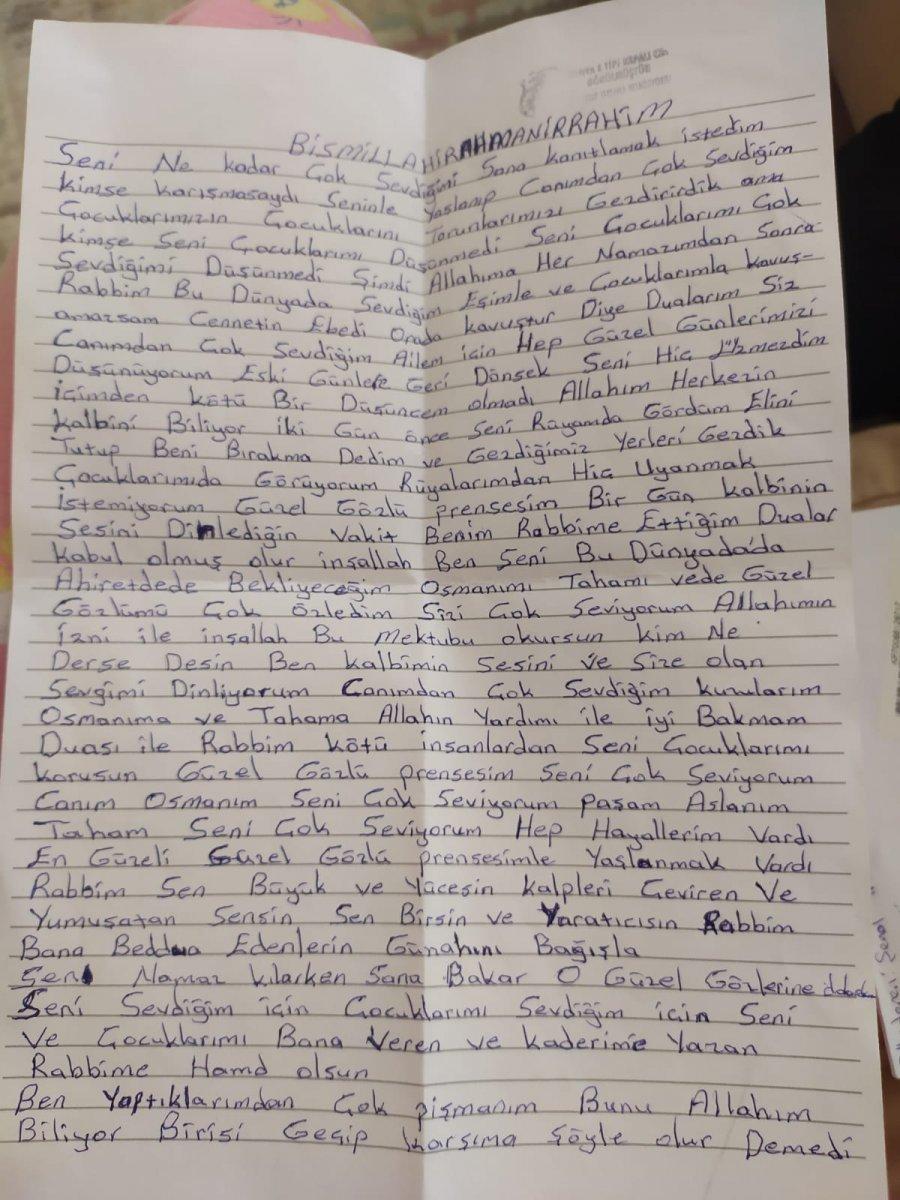 E TİPİ KAPALI CEZA
BİSMİLLAHİRAHMANİRRAHİM
Seni Ne kadar Çok Sevdiğini Sana kanıtlamak istedim
kimse karışmasaydı Seninle Yaşlanıp Canımdan Çok Sevdiğim
Çocuklarımızın Çocuklarını Torunlarımızı Gezdirirdik ama
kimse Seni Çocuklarımı Düşünmedi Seni Çocuklarımı Çok
Sevdiğimi Düşünmedi Şimdi Allahıma Her Namazımdan Sonra
Rabbim Bu Dünyada Sevdiğim Eşimle ve Çocuklarımla kavuş-
amazsam Cennetin Ebedi Orada kavuştur Diye Dualarım Siz
Canımdan Çok Sevdiğim Ailem için Hep Güzel Günlerimizi
Düşünüyorum Eski Günlere Geri Dönsek Seni Hiç Üzmezdim
içimden kötü Bir Düşüncem olmadı Allahım Herkezin
kalbini Biliyor iki Gün önce Seni Rüyamda Gördüm Elini
Tutup Beni Bırakma Dedim ve Gezdiğimiz Yerleri Gezdik
Çocuklarımıda Görüyorum Rüyalarımdan Hiç Uyanmak
istemiyorum Güzel Gözlü prensesim Bir Gün kalbinin
Sesini Dinlediğin Vakit Benim Rabbime Ettiğim Dualar
kabul olmuş olur inşallah Ben Seni Bu Dünyada'da
Ahiretdede Bekliyeceğim Osmanımı Tahamı vede Güzel
Gözlümü Çok özledim Sizi Çok Seviyorum Allahımın
izni ile inşallah Bu Mektubu okursun kim Ne
Derse Desin Ben kalbimin Sesini ve Size olan
Sevgimi Dinliyorum Canımdan Çok Sevdiğim kuzularım
Osmanıma ve Tahama Allahın Yardımı ile iyi Bakmam
Duası ile Rabbim kötü insanlardan Seni Çocuklarımı
korusun Güzel Gözlü prensesim Seni Çok Seviyorum
Canım Osmanım Seni Çok Seviyorum paşam Aslanım
Taham Seni Çok Seviyorum Hep Hayallerim Vardı
En Güzeli Güzel Gözlü prensesimle Yaşlanmak Vardı
Rabbim Sen Büyük ve Yücesin kalpleri Çeviren Ve
Yumuşatan Sensin Sen Birsin ve Yaratıcısın Rabbim
Bana Beddua Edenlerin Günahını Bağışla
Seni Namaz kılarken Sana Bakar O Güzel Gözlerine
Seni Sevdiğim için Çocuklarımı Sevdiğim için Seni
Ve Çocuklarımı Bana Veren ve kaderime Yazan
Rabbime Hamd olsun
Ben Yaptıklarımdan Çok pişmanım Bunu Allahım
Biliyor Birisi Geçip karşıma şöyle olur Demedi